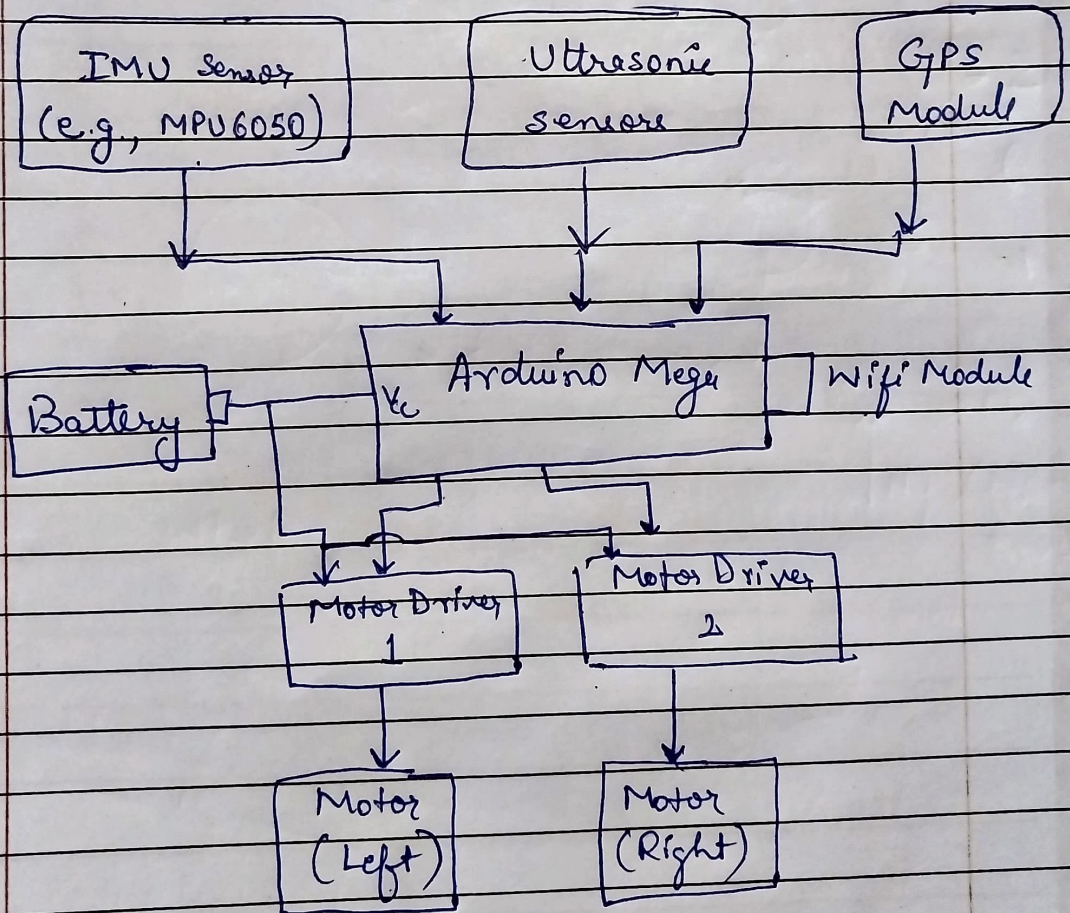 IMU Sensor
(e.g., MPU6050)
Ultrasonic
sensors
GPS
Module
Battery
Vc
Arduino Mega
Wifi Module
Motor Driver
1
Motor Driver
2
Motor
(Left)
Motor
(Right)